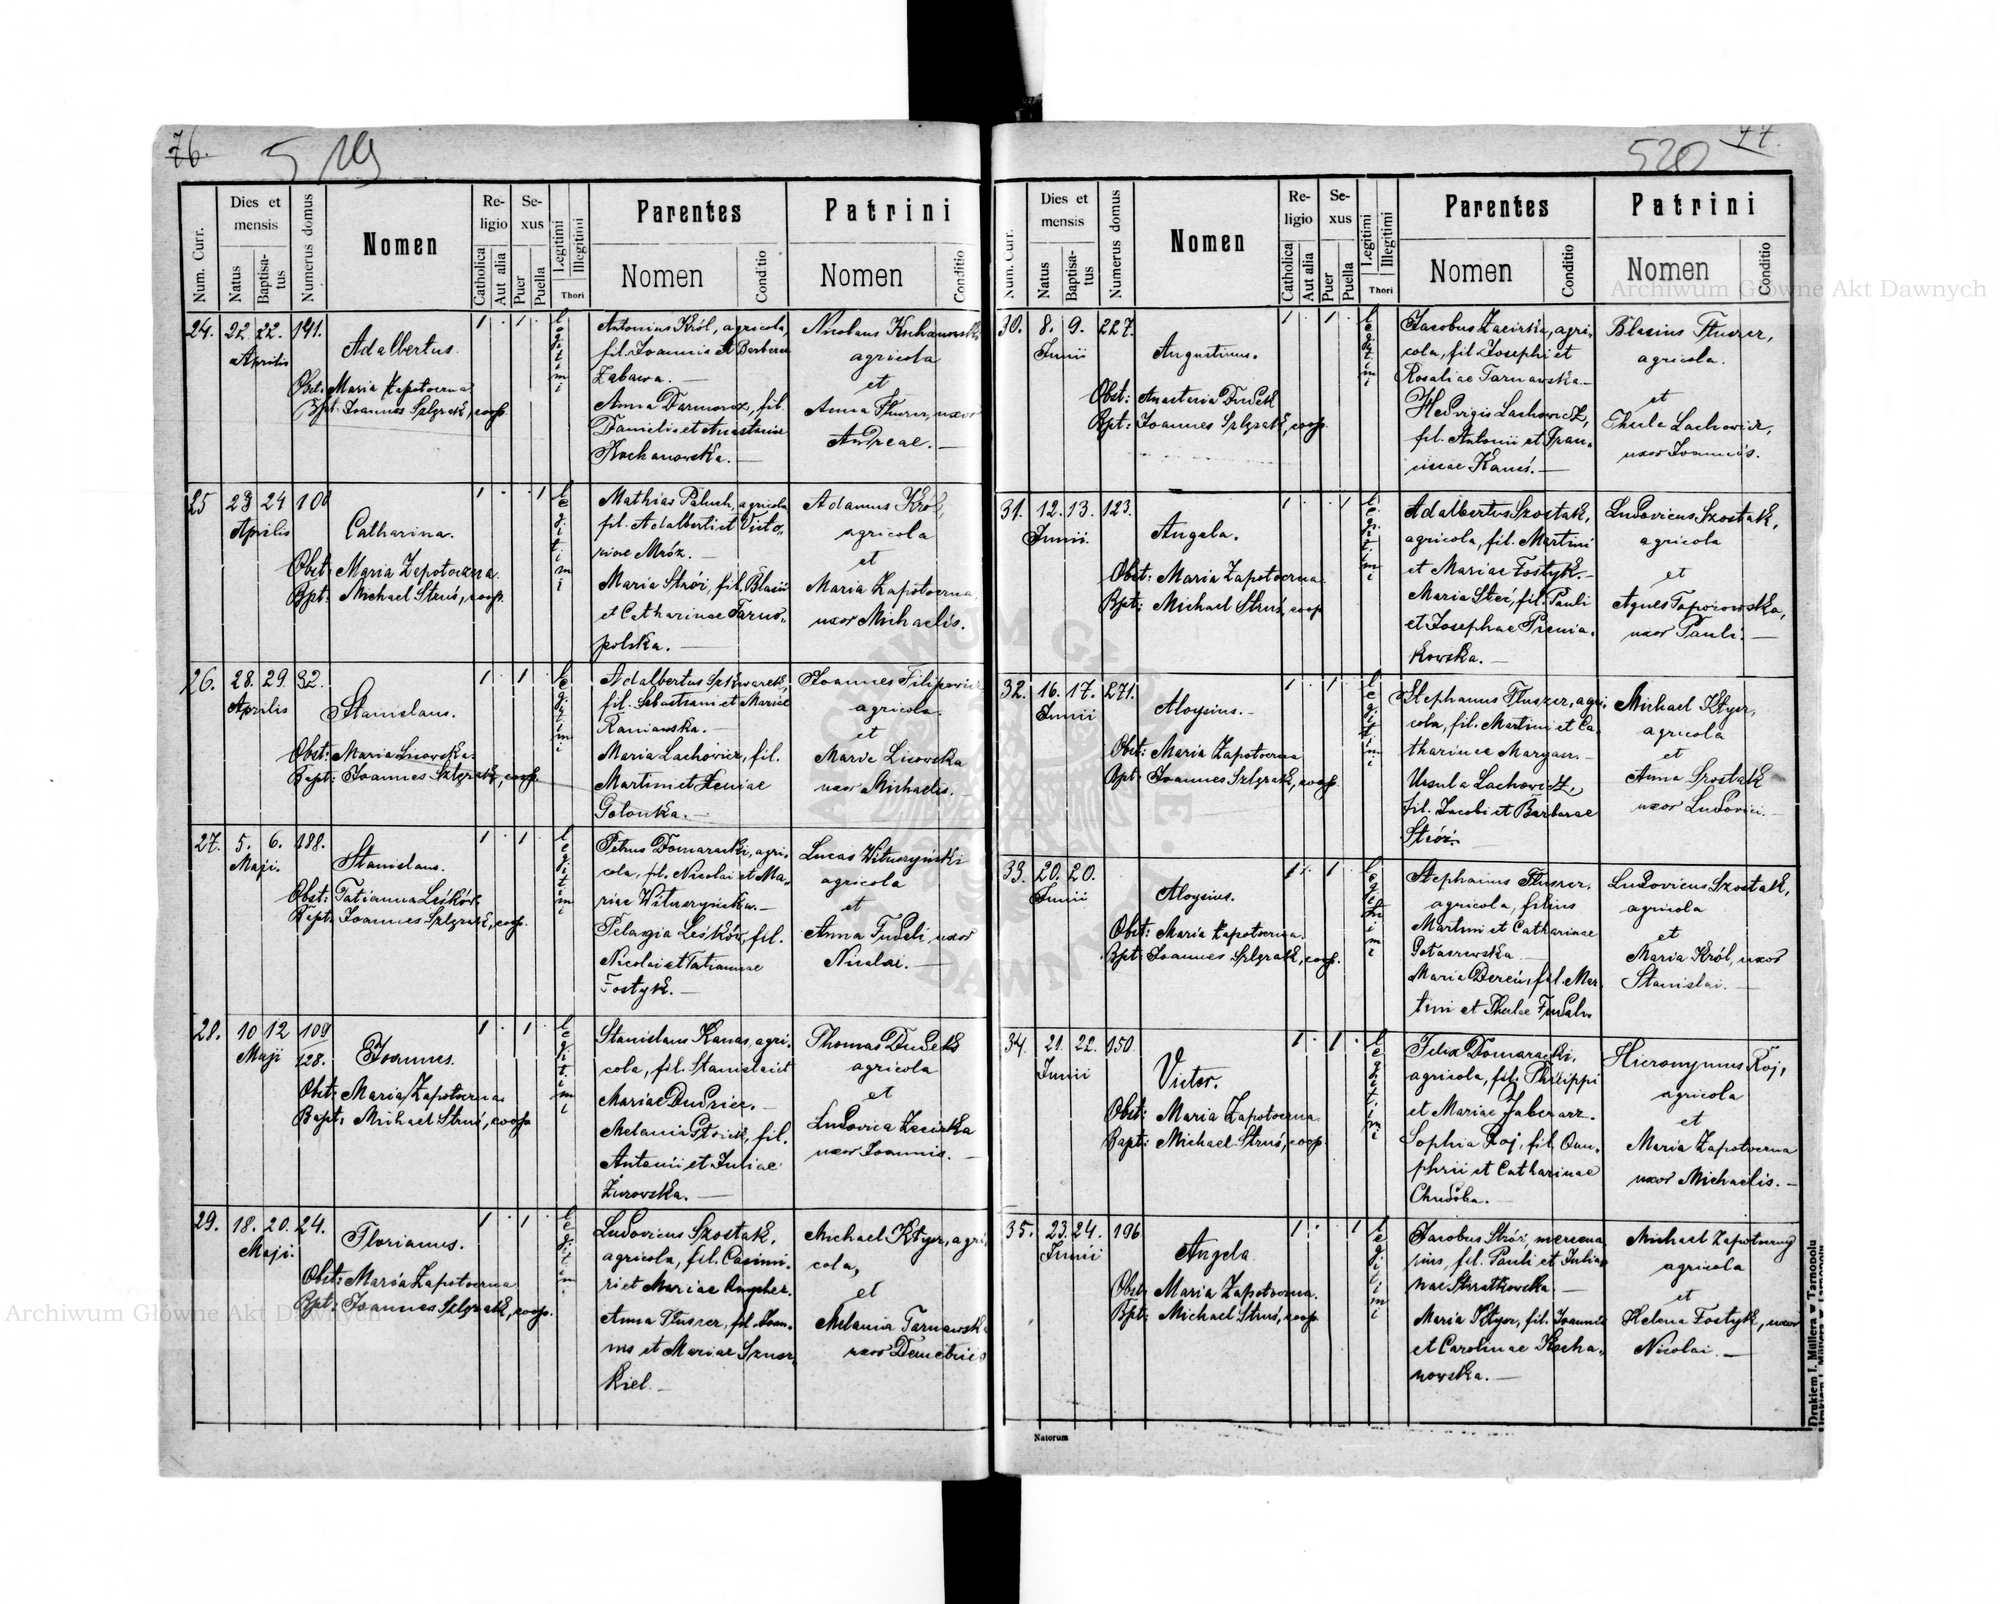 76.
519
Num. Curr.
Dies et mensis
Natus
Baptisatus
Numerus domus
Nomen
Religio
Catholica
Aut alia
Sexus
Puer
Puella
Legitimi
Illegitimi
Thori
Parentes
Nomen
Conditio
Patrini
Nomen
Conditio
24. 22. 22. 141.
Aprilis
Adalbertus.
Obst: Maria Zapotoczna
Bpt: Joannes Szlęzak, coop.
legitimi
Antonius Król, agricola,
fil. Joannis et Barbara
Zabawa. —
Anna Darmoroz, fil.
Danielis et Anastasiae
Kochanowska. —
Nicolaus Kochanowski
agricola
et
Anna Fluszer, uxor
Andreae. —
25 23 24 100
Aprilis
Catharina.
Obst: Maria Zapotoczna.
Bpt: Michael Struś, coop.
legitimi
Mathias Paluch, agricola
fil. Adalberti et Victo„
riae Mróz. —
Maria Stróż, fil. Blasii
et Catharinae Tarno„
polska. —
Adamus Król,
agricola
et
Maria Zapotoczna,
uxor Michaelis.
26. 28. 29. 32.
Aprilis
Stanislaus.
Obst: Maria Lisowska.
Bapt: Joannes Szlęzak, coop.
legitimi
Adalbertus Szkwarek,
fil. Sebastiani et Mariae
Raniawska. —
Maria Lachowicz, fil.
Martini et Xeniae
Golonka. —
Joannes Filipowicz
agricola.
et
Maria Lisowska
uxor Michaelis. —
27. 5. 6. 188.
Maji.
Stanislaus.
Obst: Tatianna Leśków
Bapt: Joannes Szlęzak, coop.
legitimi
Petrus Domaracki, agri„
cola, fil. Nicolai et Ma„
riae Wituszyńska. —
Pelagia Leśków, fil.
Nicolai et Tatiannae
Fostyk. —
Lucas Wituszyński
agricola
et
Anna Fudali, uxor
Nicolai. —
28. 10 12 109
Maji 128.
Joannes.
Obst: Maria Zapotoczna.
Bapt: Michael Struś, coop.
legitimi
Stanislaus Kanas, agri„
cola, fil. Stanislai et
Mariae Dudzicz. —
Melania Stoick, fil.
Antonii et Juliae
Żurowska. —
Thomas Dudek
agricola
et
Ludovica Zacirka
uxor Joannis. —
29. 18. 20. 24.
Maji.
Florianus.
Obst: Maria Zapotoczna
Bpt: Joannes Szlęzak, coop.
Ludovicus Szostak,
agricola, fil. Casimi„
ri et Mariae
Anna Fluszer, fil. Joan„
nis et Mariae Sznur„
kiel. —
Michael Ktyor, agri
cola,
et
Melania Tarnawska
uxor Demetrii
77.
520
Num. Curr.
Dies et mensis
Natus
Baptisatus
Numerus domus
Nomen
Religio
Catholica
Aut alia
Sexus
Puer
Puella
Legitimi
Illegitimi
Thori
Parentes
Nomen
Conditio
Patrini
Nomen
Conditio
30. 8. 9. 227.
Junii
Augustinus.
Obst: Anastasia Dudek
Bpt: Joannes Szlęzak, coop.
legitimi
Jacobus Zacirka, agri„
cola, fil. Josephi et
Rosaliae Tarnawska. —
Hedvigis Lachowicz,
fil. Antonii et Fran„
ciscae Kanas. —
Blasius Fluszer,
agricola.
et
Thecla Lachowicz,
uxor Joannis.
31. 12. 13. 123.
Junii.
Angela.
Obst: Maria Zapotoczna
Bpt: Michael Struś, coop
legitimi
Adalbertus Szostak,
agricola, fil. Martini
et Mariae Fostyk. —
Maria Stec, fil. Pauli
et Josephae Pienia„
kowska. —
Ludovicus Szostak,
agricola
et
Agnes Toporowska,
uxor Pauli. —
32. 16. 17. 271.
Junii
Aloysius. —
Obst: Maria Zapotoczna
Bpt: Joannes Szlęzak, coop.
legitimi
Stephanus Fluszer, agri„
cola, fil. Martini et Ca„
tharinae Margasz. —
Ursula Lachowicz,
fil. Jacobi et Barbarae
Stróż. —
Michael Ktyor,
agricola
et
Anna Szostak
uxor Ludovici. —
33. 20. 20.
Junii
Aloysius.
Obst: Maria Zapotoczna
Bpt: Joannes Szlęzak, coop.
legitimi
Stephanus Fluszer,
agricola, filius
Martini et Catharinae
Potaszewska —
Maria Dereń, fil. Mar„
tini et Theclae Fudali.
Ludovicus Szostak,
agricola
et
Maria Król, uxor
Stanislai. —
34. 21. 22. 150
Junii
Victor.
Obst: Maria Zapotoczna
Bapt: Michael Struś, coop.
legitimi
Felix Domaracki,
agricola, fil. Philippi
et Mariae
Sophia Roj, fil. Onu„
phrii et Catharinae
Chudoba. —
Hieronymus Roj,
agricola
et
Maria Zapotoczna
uxor Michaelis. —
35. 23. 24. 196
Junii
Angela
Obst: Maria Zapotoczna.
Bpt: Michael Struś, coop
legitimi
Jacobus Stróż, mercena„
rius, fil. Pauli et Julian„
nae —
Maria Ktyor, fil. Joannis
et Carolinae Kocha„
nowska. —
Michael Zapotoczny
agricola
et
Helena Fostyk, uxor
Nicolai. —
Natorum
Drukiem I. Müllera w Tarnopolu
Archiwum Główne Akt Dawnych
Archiwum Główne Akt Dawnych
ARCHIWUM GŁÓWNE AKT DAWNYCH